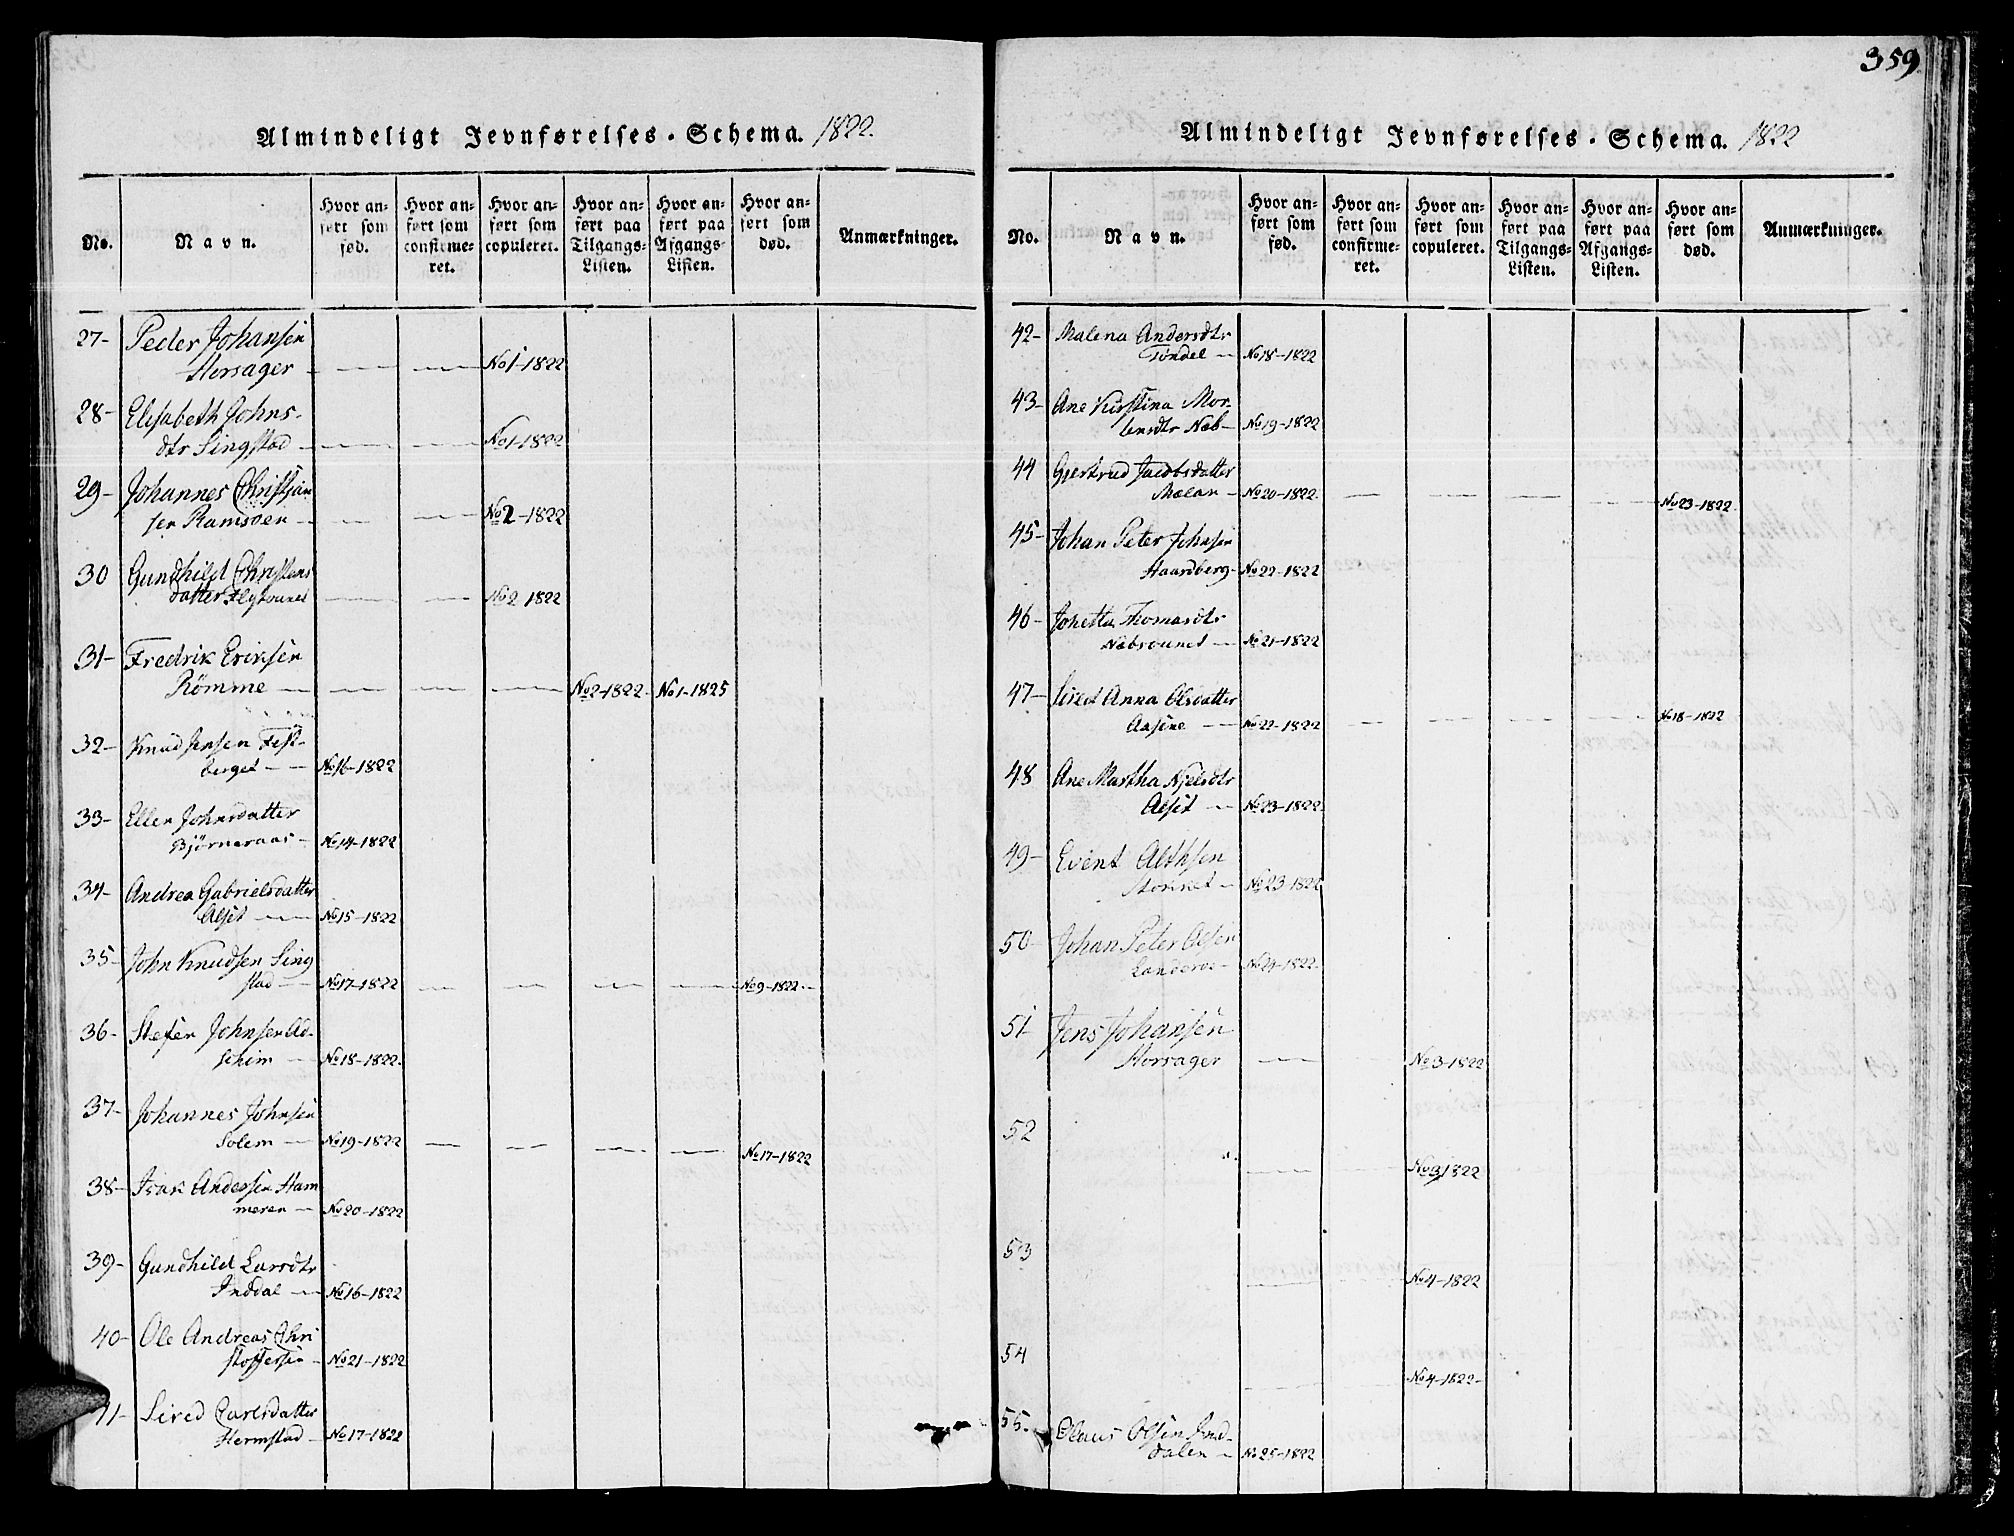 Almindeligt Jevnførelses-Schema. 1822.
No.
Navn.
Hvor anført som fød.
Hvor anført som confirmeret.
Hvor anført som copuleret.
Hvor anført paa Tilgangs-Listen.
Hvor anført paa Afgangs-Listen.
Hvor anført som død.
Anmærkninger.
27- Peder Johansen
Horsager - No 1-1822
28- Elisabeth Johns-
dtr Singstad - No 1-1822
29- Johannes Christjan
sen Ramsøen - No 2-1822
30 Gundhild Christens
datter - No 2 1822
31- Fredrik Eriksen
Römme - No 2-1822. No 1-1825
32- Knud Jensen Fest-
berget - No 16-1822
33- Ellen Johnsdatter
Björneraas - No 14-1822
34- Andrea Gabrielsdatter
Alset - No 15-1822
35- John Knudsen Sing
stad - No 17-1822 No 9-1822.
36- Stefen Johnsen
No 18-1822.
37- Johannes Johnsen
Solem - No 19-1822 No 17-1822
38- Isak Andersen Ham
meren - No 20-1822
39- Gundhild Larsdtr
Inddal - No 16-1822
40- Ole Andreas Chri
stoffersen - No 21-1822
41- Sired Carlsdatter
Hermstad - No 17-1822
359
Almindeligt Jevnførelses-Schema. 1822
No.
Navn.
Hvor anført som fød.
Hvor anført som confirmeret.
Hvor anført som copuleret.
Hvor anført paa Tilgangs-Listen.
Hvor anført paa Afgangs-Listen.
Hvor anført som død.
Anmærkninger.
42- Malena Andersdtr
Tøndel - No 18-1822
43- Ane Kirstina Mor-
tensdtr Næb - No 19-1822
44 Gjertrud Jacobsdatter
Mælan - No 20-1822. No 23-1822
45- Johan Peter Johnsen
Haardberg - No 22-1822
46- Johetta Thomasdtr
Næbvounet - No 21-1822
47- Sired Anna Olsdatter
Aasene - No 22-1822 No 18-1822
48 Ane Martha Njelsdtr
Alset - No 23-1822
49- Event
No 23-1822
50- Johan Peter Olsen
No 24-1822.
51 Jens Johansen
Horsager No 3-1822
52
No 3 1822
53
No 4-1822
54
No 4-1822-
55. Olaus Olsen Ind-
dalen - No 25-1822